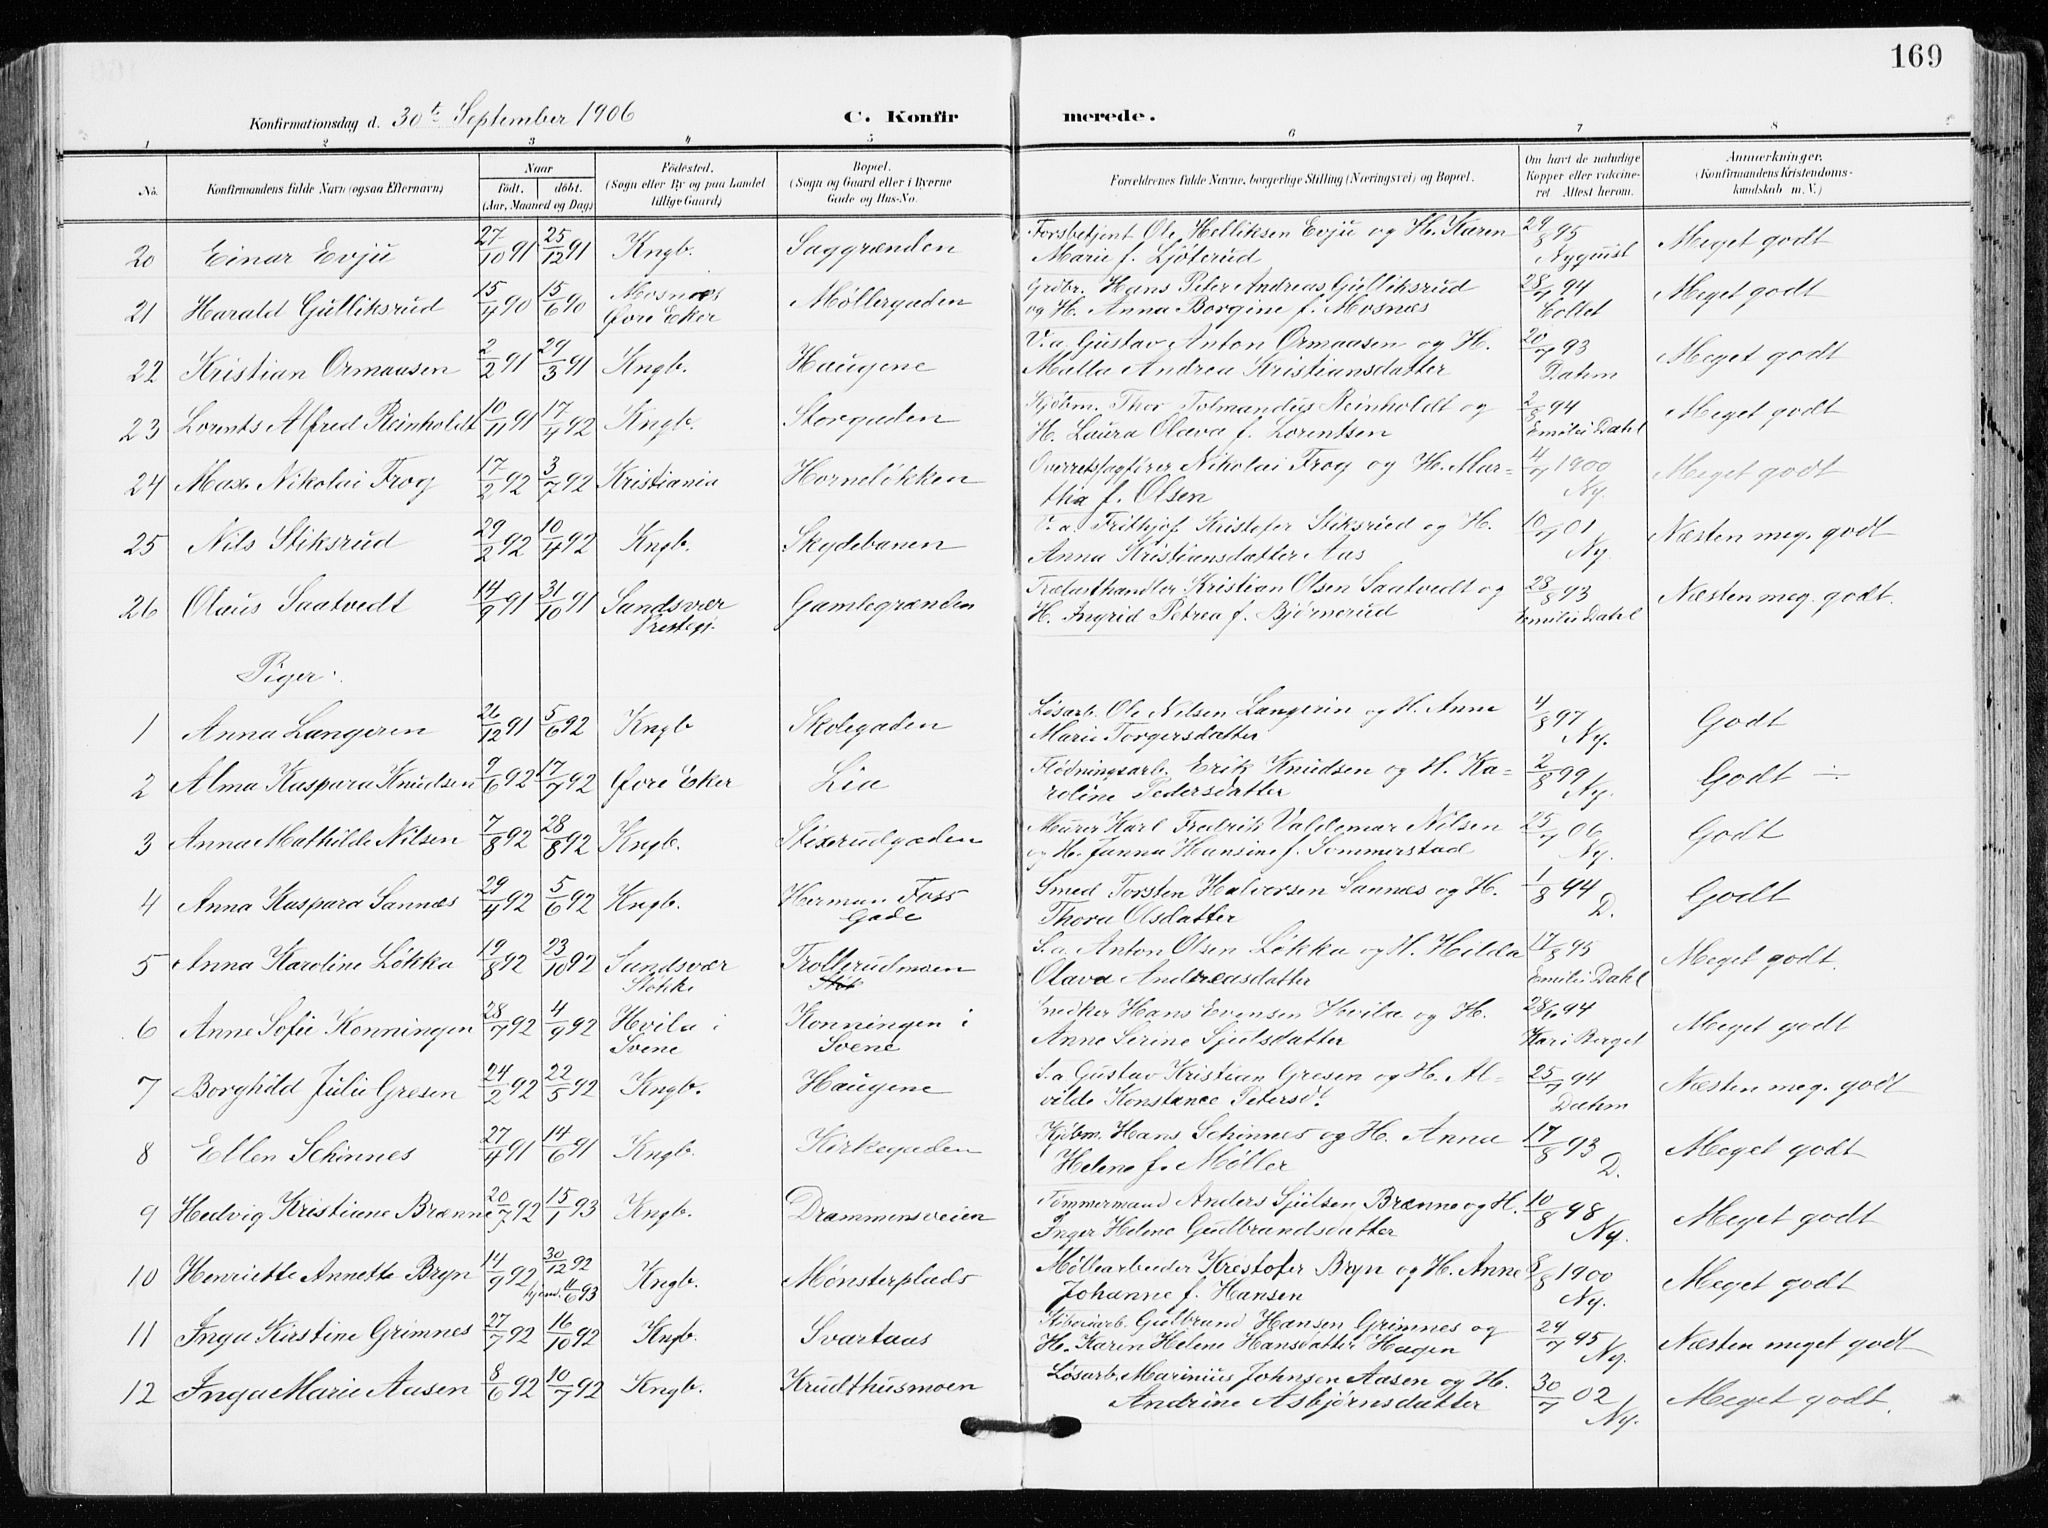 169
Konfirmationsdag d. 30te September 1906 C. Konfirmerede.
1 2 3 4 5 6 7 8
No. Konfirmandens fulde Navn (ogsaa Efternavn) Naar födt. döbt. (Aar, Maaned og Dag) Födested. (Sogn eller By og paa Landet tillige Gaard) Bopæl. (Sogn og Gaard eller i Byerne Gade og Hus-No. Forældrenes fulde Navne, borgerlige Stilling (Næringsvei) og Bopæl. Om havt de naturlige Kopper eller vakcineret. Attest herom. Anmærkninger. (Konfirmandens Kristendomskundskab m. V.)
20 Einar Evju 27/10 91 25/12 91 Kngb. Saggrænden Forsbetjent Ole Helliksen Evju og H. Karen 24/8 95 Meget godt
Marie f. Ljöterud Nyquist
21 Harald Gulliksrud 15/4 90 15/6 90 Mosnæs Møllergaden Grdbr. Hans Peter Andreas Gulliksrud 28/7 94 Meget godt
Øvre Eker og H. Anna Borgine f. Mosnæs Collet
22 Kristian Ormaasen 2/2 91 29/3 91 Kngb. Haugene V.a. Gustav Anton Ormaasen og H. 20/7 93 Meget godt
Malla Andrea Kristiansdatter Dahm
23 Lorents Alfred Reinholdt 10/11 91 17/4 92 Kngb. Storgaden Kjöbm. Thor Tolmandus Reinholdt og 2/8 94 Meget godt
H. Laura Olava f. Lorentsen Emilie Dahl
24 Max Nikolai Frog 17/2 92 3/7 92 Kristiania Horneløkken Overretssagfører Nikolai Frog og H. Mar= 4/7 1900 Meget godt
tha f. Olsen Ny.
25 Nils Stiksrud 29/2 92 10/4 92 Kngb. Skydebanen V.a. Frithjof Kristofer Stiksrud og H. 10/7 01 Næsten meg. godt
Anna Kristiansdatter Aas Ny.
26 Olaus Saatvedt 14/9 91 31/10 91 Sandsvær Gamlegrænden Trælasthandler Kristian Olsen Saatvedt og 28/8 93 Næsten meg. godt.
Prestegj. H. Ingrid Petrea f. Bjørnerud Emilie Dahl
Piger:
1 Anna Langeren 26/12 91 5/6 92 Kngb Skolegaden Løsarb. Ole Nilsen Langerin og H. Anne 4/8 97 Godt
Marie Torgersdatter Ny.
2 Alma Kaspara Knudsen 9/6 92 17/7 92 Øvre Eker Lia Flødningsarb. Erik Knudsen og H. Ka= 2/8 99 Godt
roline Pedersdatter Ny.
3 Anna Mathilde Nilsen 7/8 92 28/8 92 Kngb. Stixerudgaden Murer Karl Fredrik Valdemar Nilsen 25/7 06 Godt
og H. Janna Hansine f. Sommerstad Ny.
4 Anna Kaspara Sannæs 29/4 92 5/6 92 Kngb. Herman Foss Smed Torsten Halvorsen Sannæs og H. 1/8 94 Godt
Gade Thora Olsdatter D.
5 Anna Karoline Løkka 19/8 92 23/10 92 Sandsvær Trollerudmoen S.a. Anton Olsen Løkka og H. Hilda 17/8 95 Meget godt.
Støkke Olava Andreasdatter Emilie Dahl
6 Anne Sofie Konningen 28/7 92 4/9 92 Hvila i Konningen i Snedker Hans Evensen Hvila og H. 28/6 94 Meget godt
Svene Svene Anne Serine Sjulsdatter Kari Berget
7 Borghild Julie Gresen 24/2 92 22/5 92 Kngb. Haugene S.a. Gustav Kristian Gresen og H. Al= 25/7 94 Næsten meg. godt
vilde Konstance Petersd. Dahm
8 Ellen Schinnes 27/4 91 14/6 91 Kngb. Kirkegaden Kjöbm. Hans Schinnes og H. Anna 17/8 93 Meget godt
Helene f. Møller D.
9 Hedvig Kristiane Brænne 20/7 92 15/1 93 Kngb. Drammensveien Tømmermand Anders Sjulsen Brænne og H. 10/8 98 Meget godt
Inger Helene Gudbrandsdatter Ny.
10 Henriette Annette Bryn 14/9 92 30/12 92 Kngb. Mønsterplads Møllearbeider Kristofer Bryn og H. Anne 8/8 1900 Meget godt
hjemd. 11/6 93 Johanne f. Hansen Ny.
11 Inga Kirstine Grimnes 27/7 92 16/10 92 Kngb. Svartaas Stiboiarb. Gulbrand Hansen Grimnes og 24/7 95 Næsten meget godt
H. Karen Helene Hansdatter Hagen Ny.
12 Inga Marie Aasen 8/6 92 10/7 92 Kngb. Krudthusmoen Løsarb. Marinius Johnsen Aasen og H. 30/7 02 Meget godt.
Andrine Asbjørnsdatter Ny.